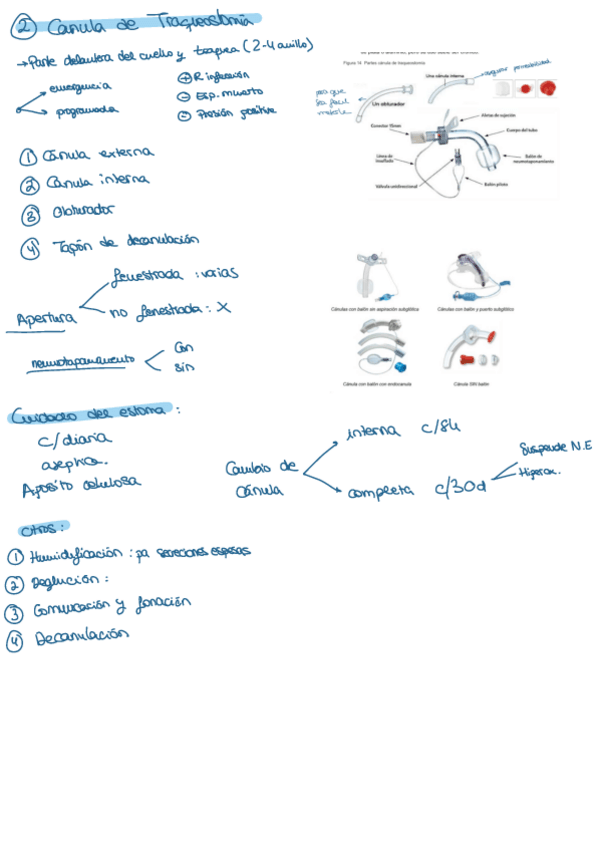 ② Cánula de Traqueostomía
→ Parte delantera del cuello y traquea (2-4 anillo)
emergencia
programada
⊕ R. infección
⊖ Esp. muerto
⊖ Presión positiva
Figura 14 Partes cánula de traqueostomía
para que
sea facil
meterla
Un obturador
Una cánula interna
asegurar permeabilidad
Aletas de sujeción
Conector 15mm
Cuerpo del tubo
Línea de insuflado
Balón de neumotaponamiento
Válvula unidireccional
Balón piloto
① Cánula externa
② Cánula interna
③ Obturador
④ Tapón de decanulación
Apertura
fenestrada : varias
no fenestrada : X
neumotaponamiento
Con
sin
Cánulas con balón sin aspiración subglótica
Cánulas con balón y puerto subglótico
Cánula con balón con endocánula
Cánula SIN balón
Cuidados del estoma :
c/ diaria
aseptica.
Apósito celulosa
Cambio de
Cánula
interna c/8h
completa c/30d
Suspende N.E
Hiperox.
Otros :
① Humidificación : pa secreciones espesas
② Deglución :
③ Comunicación y fonación
④ Decanulación